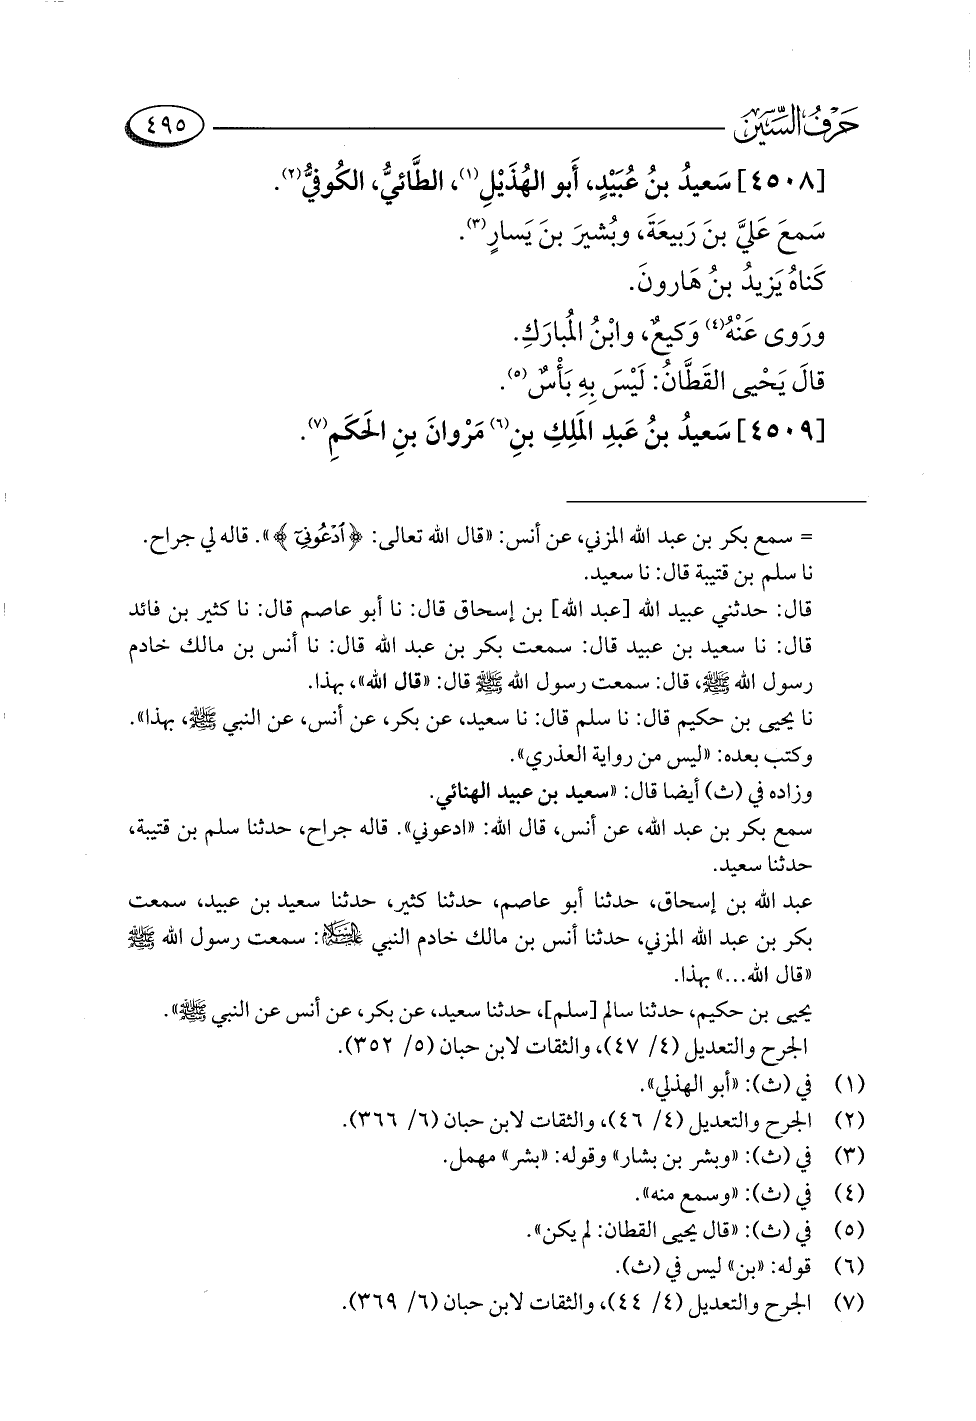 حَرْفُ السِّين
٤٩٥
[٤٥٠٨] سَعيدُ بنُ عُبَيْدٍ، أَبو الهُذَيْلِ(١)، الطَّائيُّ، الكُوفيُّ(٢).
سَمعَ عَليَّ بنَ رَبيعَةَ، وبُشيرَ بنَ يَسارٍ(٣).
كَناهُ يَزيدُ بنُ هَارونَ.
ورَوى عَنْهُ(٤) وَكيعٌ، وابْنُ المُبارَكِ.
قالَ يَحْيى القَطَّانُ: لَيْسَ بِهِ بَأْسٌ(٥).
[٤٥٠٩] سَعيدُ بنُ عَبدِ المَلِكِ بنِ(٦) مَرْوانَ بنِ الحَكَمِ(٧).
= سمع بكر بن عبد الله المزني، عن أنس: «قال الله تعالى: ﴿ٱدْعُونِيٓ﴾». قاله لي جراح.
نا سلم بن قتيبة قال: نا سعيد.
قال: حدثني عبيد الله [عبد الله] بن إسحاق قال: نا أبو عاصم قال: نا كثير بن فائد
قال: نا سعيد بن عبيد قال: سمعت بكر بن عبد الله قال: نا أنس بن مالك خادم
رسول الله ﷺ، قال: سمعت رسول الله ﷺ قال: «قال الله»، بهذا.
نا يحيى بن حكيم قال: نا سلم قال: نا سعيد، عن بكر، عن أنس، عن النبي ﷺ، بهذا».
وكتب بعده: «ليس من رواية العذري».
وزاده في (ث) أيضا قال: «سعيد بن عبيد الهنائي.
سمع بكر بن عبد الله، عن أنس، قال الله: «ادعوني». قاله جراح، حدثنا سلم بن قتيبة،
حدثنا سعيد.
عبد الله بن إسحاق، حدثنا أبو عاصم، حدثنا كثير، حدثنا سعيد بن عبيد، سمعت
بكر بن عبد الله المزني، حدثنا أنس بن مالك خادم النبي عليه السلام: سمعت رسول الله ﷺ
«قال الله...» بهذا.
يحيى بن حكيم، حدثنا سالم [سلم]، حدثنا سعيد، عن بكر، عن أنس عن النبي ﷺ».
الجرح والتعديل (٤/ ٤٧)، والثقات لابن حبان (٥/ ٣٥٢).
(١) في (ث): «أبو الهذلي».
(٢) الجرح والتعديل (٤/ ٤٦)، والثقات لابن حبان (٦/ ٣٦٦).
(٣) في (ث): «وبشر بن بشار» وقوله: «بشر» مهمل.
(٤) في (ث): «وسمع منه».
(٥) في (ث): «قال يحيى القطان: لم يكن».
(٦) قوله: «بن» ليس في (ث).
(٧) الجرح والتعديل (٤/ ٤٤)، والثقات لابن حبان (٦/ ٣٦٩).